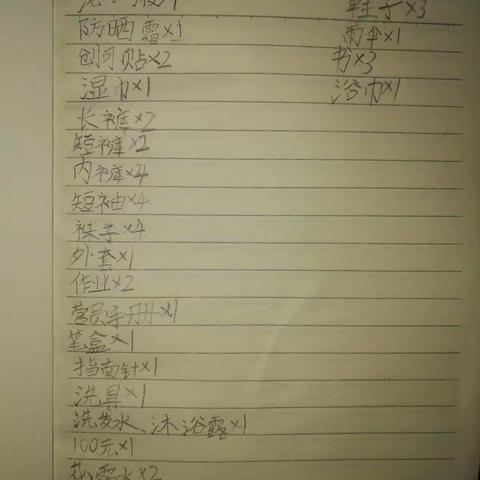 鞋子×3
防晒霜×1
雨伞×1
创可贴×2
书×3
湿巾×1
浴巾×1
长裤×2
短裤×2
内裤×4
短袖×4
袜子×4
外套×1
作业×2
营员手册×1
笔盒×1
指南针×1
洗具×1
洗发水、沐浴露×1
100元×1
花露水×2